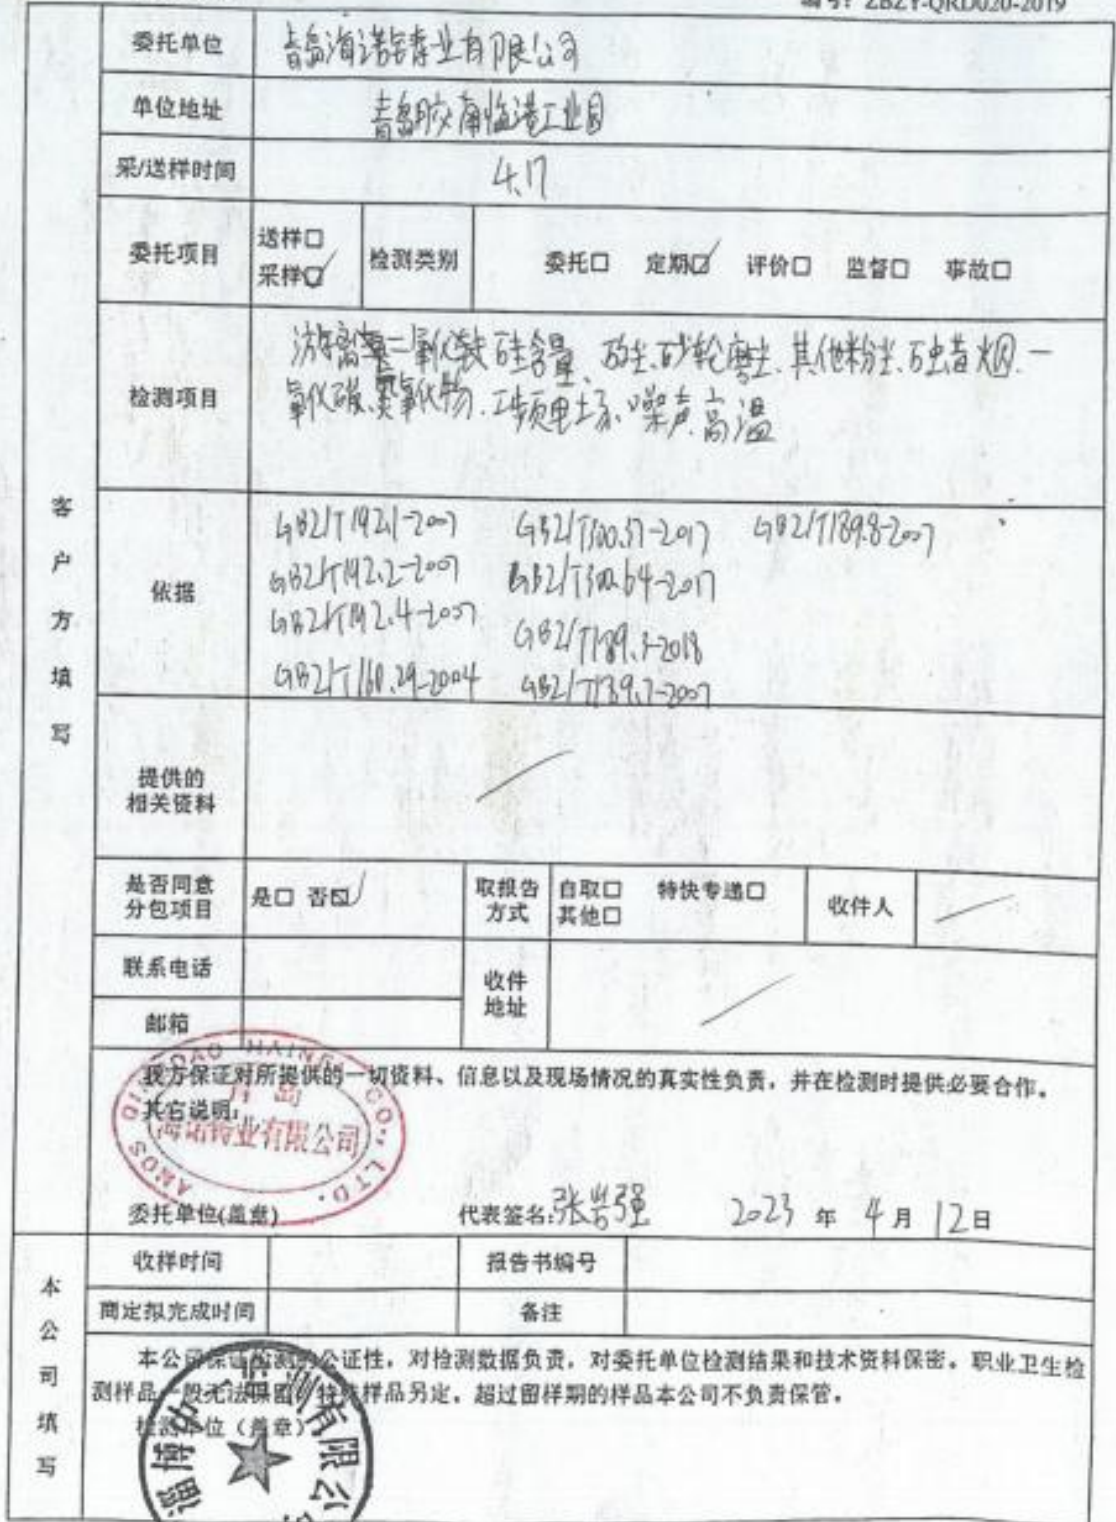 编号：ZBZY-QRD020-2019
委托单位 青岛海诺铸业有限公司
单位地址 青岛胶南临港工业园
采/送样时间 4.17
委托项目 送样□ 采样☑ 检测类别 委托□ 定期☑ 评价□ 监督□ 事故□
检测项目
游离二氧化硅含量、矽尘、砂轮磨尘、其他粉尘、石蜡烟、一
氧化碳、氮氧化物、工频电场、噪声、高温
客户方填写
依据
GBZ/T192.1-2007 GBZ/T300.37-2017 GBZ/T189.8-2007
GBZ/T192.2-2007 GBZ/T300.64-2017
GBZ/T192.4-2007 GBZ/T189.3-2018
GBZ/T160.29-2004 GBZ/T189.7-2007
提供的
相关资料
是否同意
分包项目
是□ 否☑
取报告
方式
自取□ 特快专递□
其他□
收件人
联系电话
邮箱
收件
地址
我方保证对所提供的一切资料、信息以及现场情况的真实性负责，并在检测时提供必要合作。
其它说明：
QINGDAO HAINE CO., LTD.
青岛
海诺铸业有限公司
委托单位(盖章) 代表签名: 2023 年 4 月 12 日
本公司填写
收样时间 报告书编号
商定拟完成时间 备注
本公司保证检测的公证性，对检测数据负责，对委托单位检测结果和技术资料保密。职业卫生检
测样品一般无法保留，特殊样品另定，超过留样期的样品本公司不负责保管。
检测单位（盖章）
淄博 测有限公司